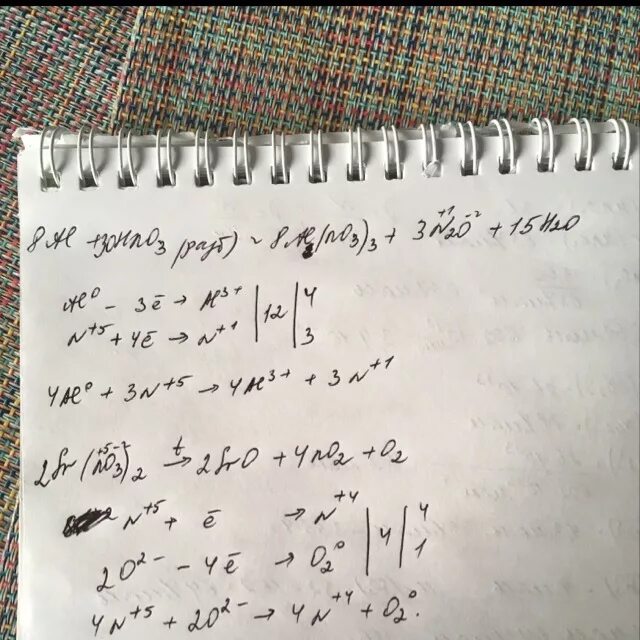 8Al + 30HNO3 (разб) = 8Al(NO3)3 + 3N2⁺¹O⁻² + 15H2O
Al⁰ - 3ē → Al³⁺ | 12 | 4
N⁺⁵ + 4ē → N⁺¹ | | 3
4Al⁰ + 3N⁺⁵ → 4Al³⁺ + 3N⁺¹
2Sr(N⁺⁵O⁻²3)2 t→ 2SrO + 4NO2 + O2
N⁺⁵ + ē → N⁺⁴ | 4 | 4
2O²⁻ - 4ē → O2⁰ | | 1
4N⁺⁵ + 2O²⁻ → 4N⁺⁴ + O2⁰.